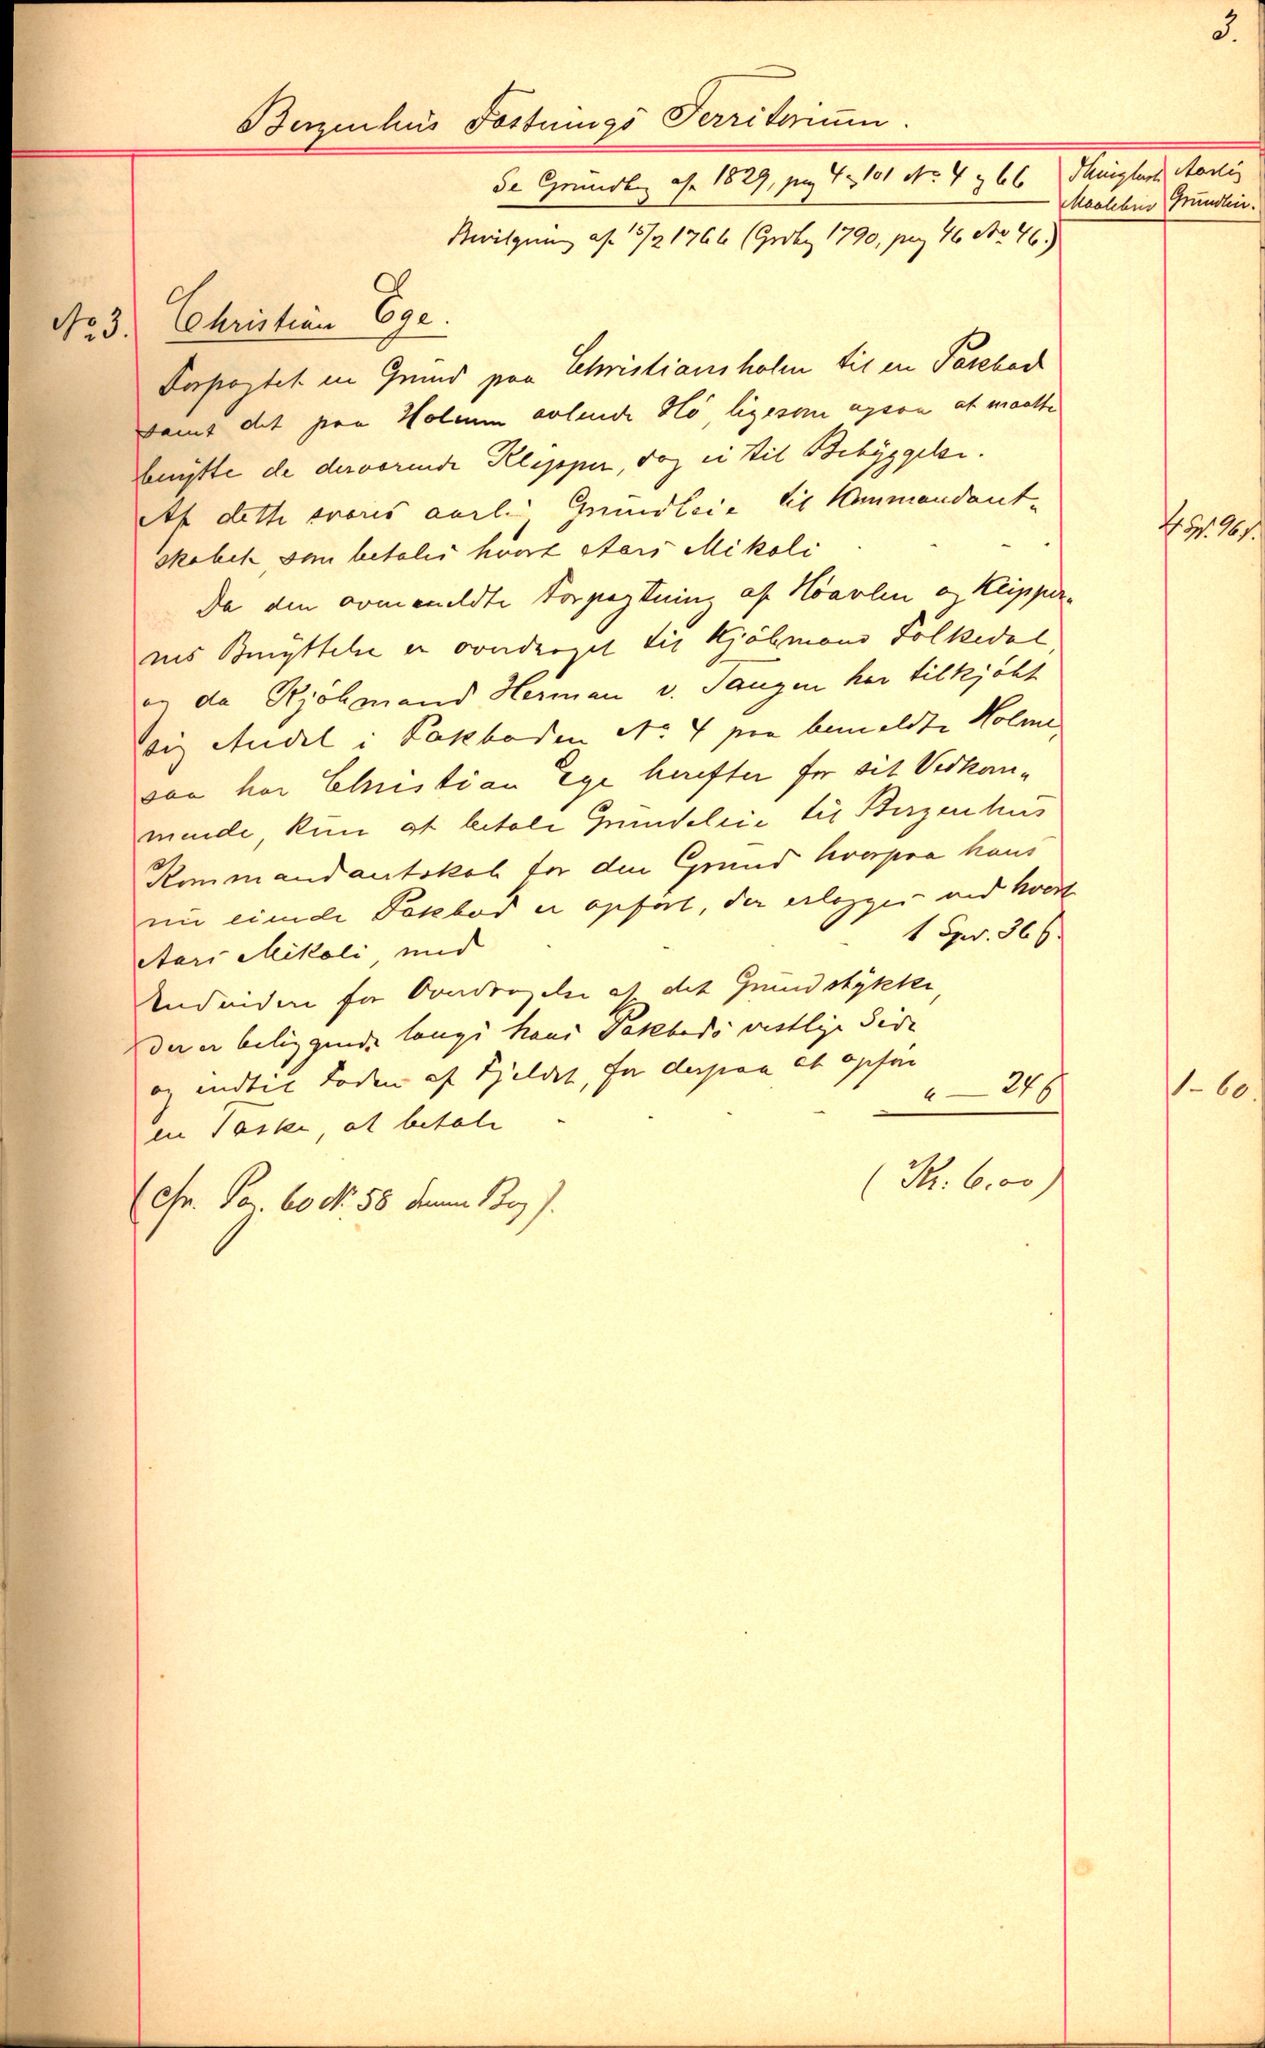 3.
Bergenhus Fæstnings Territorium.
Se Grundbog af 1829, pag 4 og 101 No 4 og 66
Thinglæst Aarlig
Maalebrev Grundleie.
Bevilgning af 15/2 1766 (Grdbog 1790, pag 46 No 46.)
No 3. Christian Ege.
Forpagtet en Grund paa Christiansholm til en Pakbod
samt det paa Holmen avlende Hö, ligesom ogsaa at maatte
benytte de derværende Klepper, dog ei til Bebyggelse.
Af dette svares aarlig Grundleie til Kommandant-
skabet, som betales hvert Aars Mikali
4 Sp. 96 s.
Da den ovmeldte Forpagtning af Höavlen og Klipper-
nes Benyttelse er overdraget til Kjöbmand Folkedal,
og da Kjöbmand Herman v. Tangen har tilkjöbt
sig Andel i Pakboden No 4 paa bemeldte Holme,
saa har Christian Ege herefter for sit Vedkom-
mende, kun at betale Grundeleie til Bergenhus
Kommandantskab for den Grund hvorpaa hans
nu eiende Pakbod er opfört, der erlægges ved hvert
Aars Mikali, med
1 Spd. 36 s.
Endvidere for Overdragelse af det Grundstykke,
der er beliggende langs hans Pakbods vestlige Side
og indtil Foden af Fjeldet, for derpaa at opföre
en Taske, at betale
" — 24 s
1 - 60.
(Kr. 6.00)
(Cfr. Pag. 60 No 58 denne Bog).